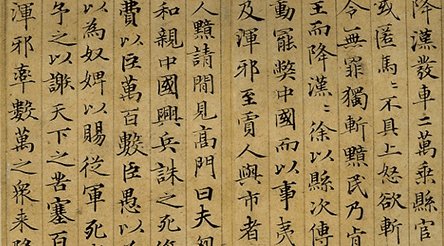 降漢發車二萬乘縣官
或匿馬〻不具上怒欲斬
令無罪獨斬黯民乃肯
主而降漢〻徐以縣次傳
動罷弊中國而以事夷
及渾邪至賈人與市者
人黯請閒見高門曰夫匈
和親中國興兵誅之死傷
費以臣萬百數臣愚以
以為奴婢以賜從軍死
予之以謝天下之苦塞百
渾邪率數萬之衆來降